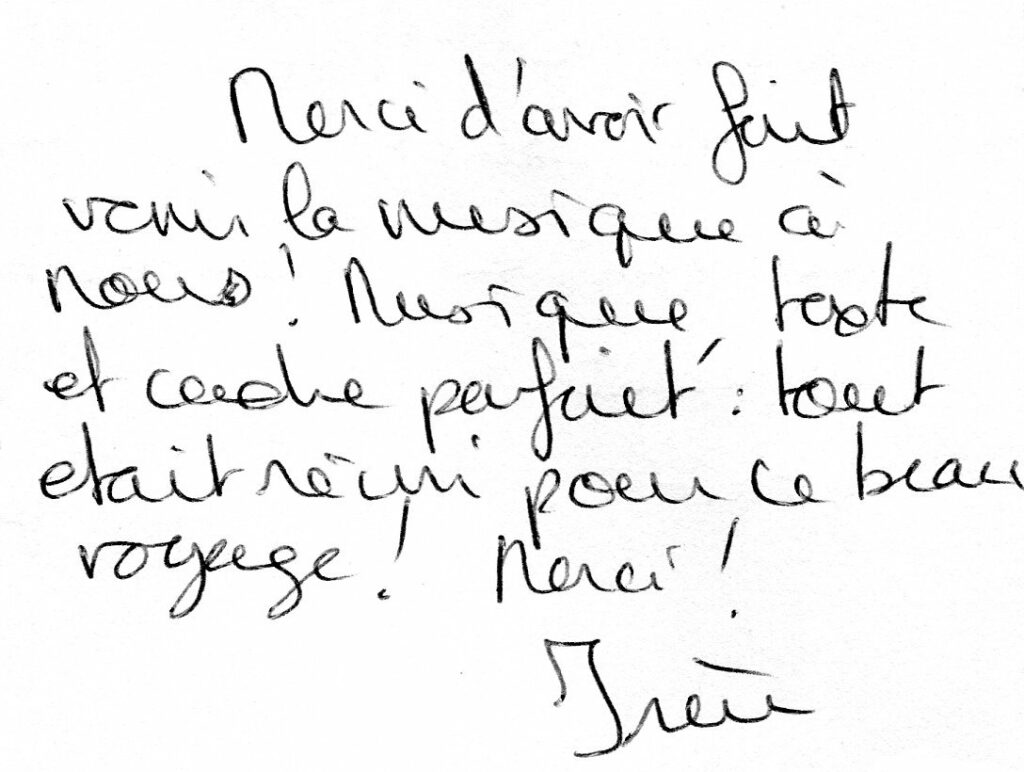 Merci d'avoir fait
venir la musique à
nous ! Musique, texte
et cadre parfait : tout
etait réuni pour ce beau
voyage ! Merci !
Irène